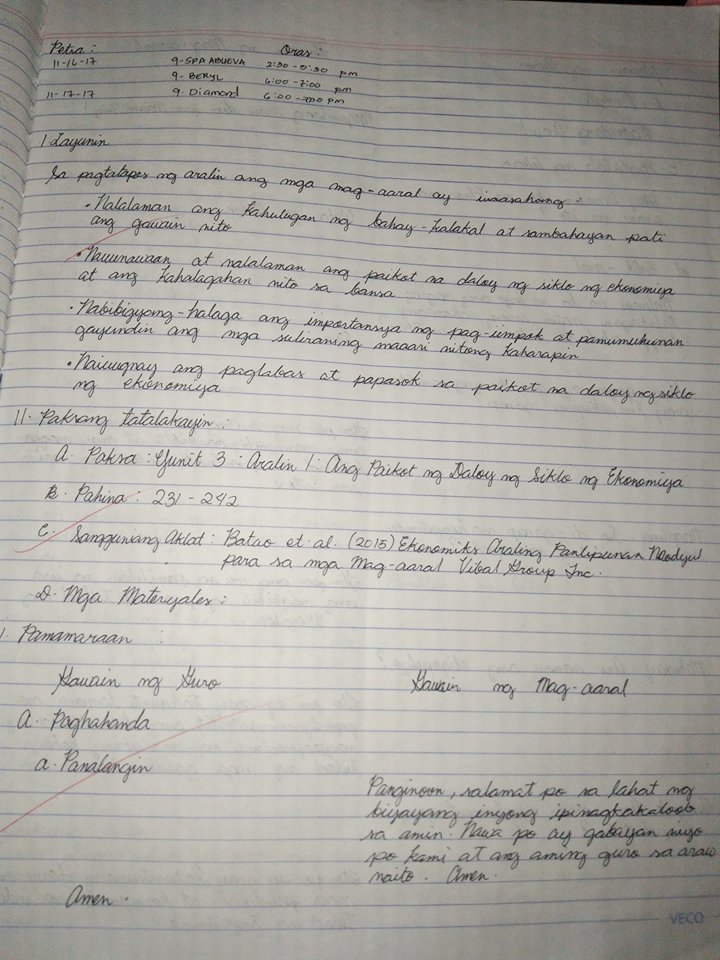 Petsa : Oras :
11-16-17 9-SPA ABUEVA 2:30-3:30 pm
9-BERYL 6:00-7:00 pm
11-17-17 9-Diamond 6:00-7:00 pm
I Layunin
Sa pagtatapos ng aralin ang mga mag-aaral ay inaasahang :
• Nalalaman ang kahulugan ng bahay-kalakal at sambahayan pati
ang gawain nito
• Nauunawaan at nalalaman ang paikot na daloy ng siklo ng ekonomiya
at ang kahalagahan nito sa bansa
• Nabibigyang-halaga ang importansya ng pag-iimpok at pamumuhunan
gayundin ang mga suliraning maaari nitong kaharapin
• Naiuugnay ang paglabas at papasok sa paikot na daloy ng siklo
ng ekonomiya
II. Paksang tatalakayin :
A. Paksa : Yunit 3 : Aralin 1 : Ang Paikot ng Daloy ng Siklo ng Ekonomiya
B. Pahina : 231 - 242
C. Sangguniang Aklat : Batao et. al. (2015) Ekonomiks Araling Panlipunan Modyul
para sa mga Mag-aaral Vibal Group Inc.
D. Mga Materyales :
Pamamaraan :
Gawain ng Guro Gawain ng Mag-aaral
A. Paghahanda
a. Panalangin
Panginoon, salamat po sa lahat ng
biyayang inyong ipinagkakaloob
sa amin. Nawa po ay gabayan niyo
po kami at ang aming guro sa araw
naito. Amen.
Amen.
VECO